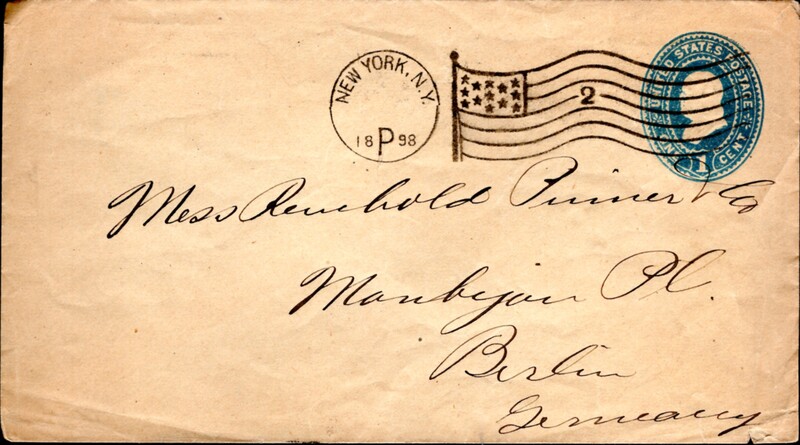 NEW YORK, N.Y.
18 P 98
2
UNITED STATES POSTAGE
ONE CENT
1
Mess Reinhold Pinner & Co
Monbijou Pl.
Berlin
Germany